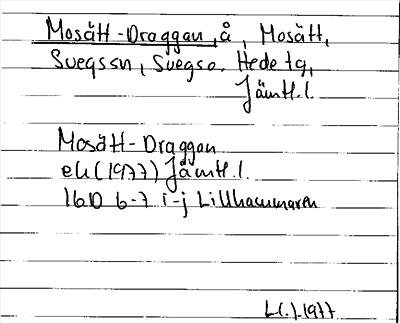 Mosätt-Draggan, å, Mosätt,
Svegssn, Svegso. Hede tg,
Jämtl.l.
Mosätt-Draggan
ek (1977) Jämtl.l.
16D 6-7 i-j Lillhammaren
L(.) 1977